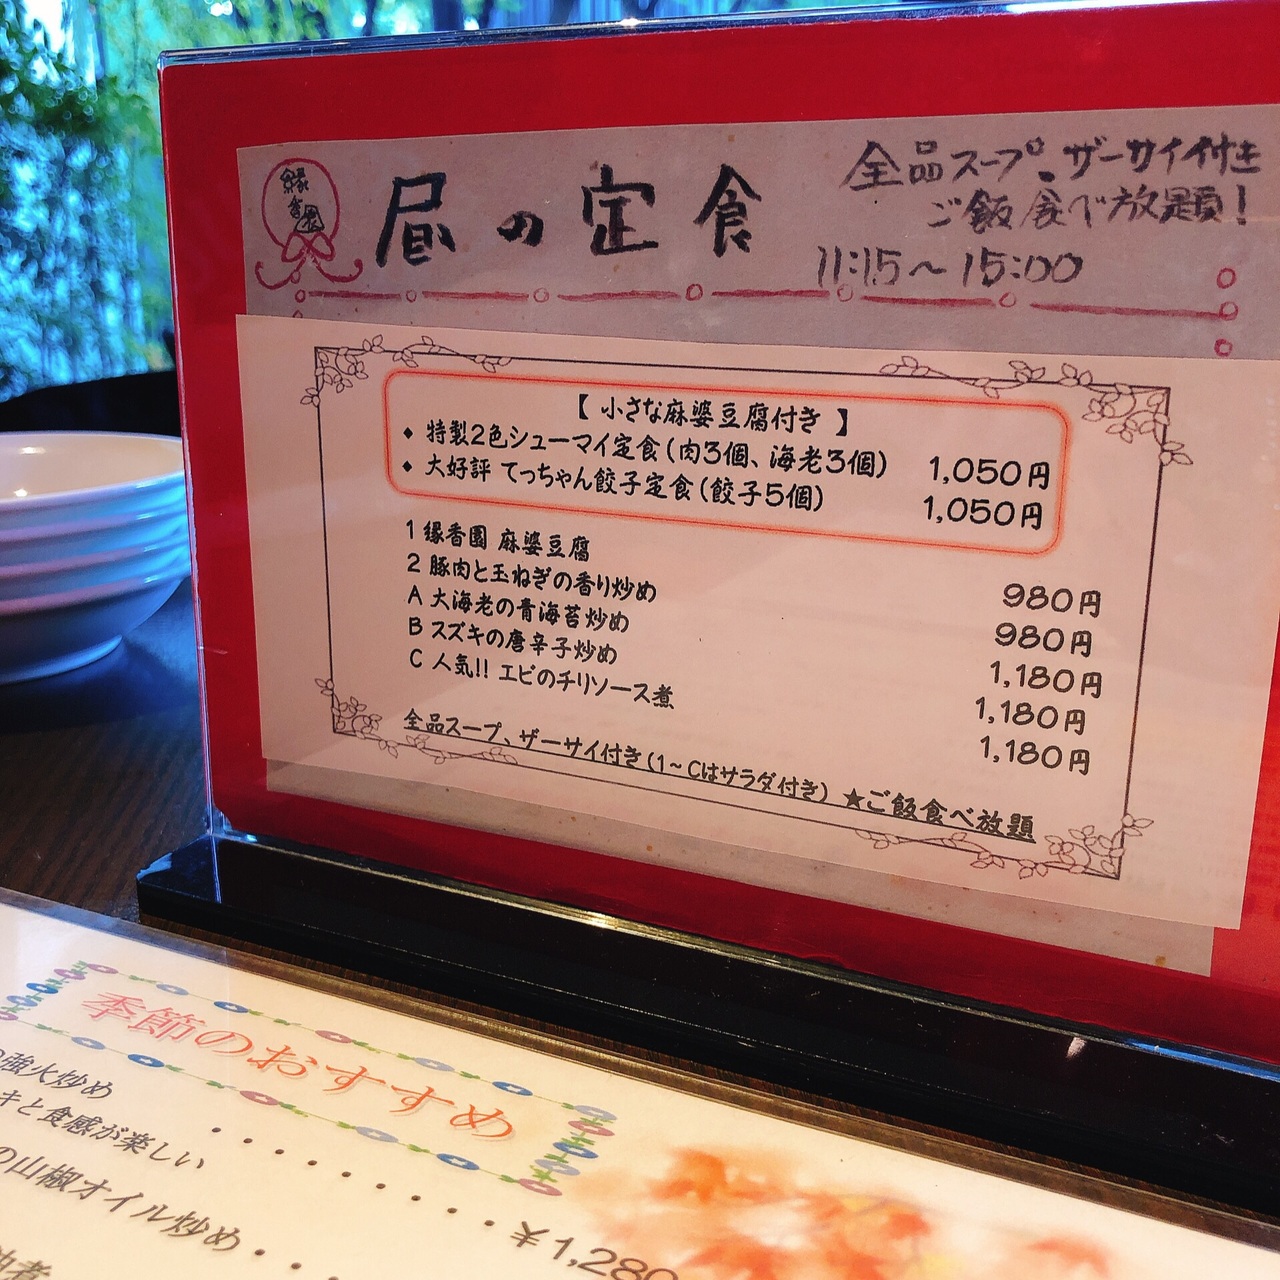 縁香園
昼の定食
全品スープ、ザーサイ付き
ご飯食べ放題!
11:15～15:00
【 小さな麻婆豆腐付き 】
◆ 特製2色シューマイ定食(肉3個、海老3個) 1,050円
◆ 大好評 てっちゃん餃子定食(餃子5個) 1,050円
1 縁香園 麻婆豆腐 980円
2 豚肉と玉ねぎの香り炒め 980円
A 大海老の青海苔炒め 1,180円
B スズキの唐辛子炒め 1,180円
C 人気!! エビのチリソース煮 1,180円
全品スープ、ザーサイ付き(1～Cはサラダ付き) ★ご飯食べ放題
季節のおすすめ
の強火炒め
キと食感が楽しい
の山椒オイル炒め・・・
・・・・・・・・・・・・¥1,280